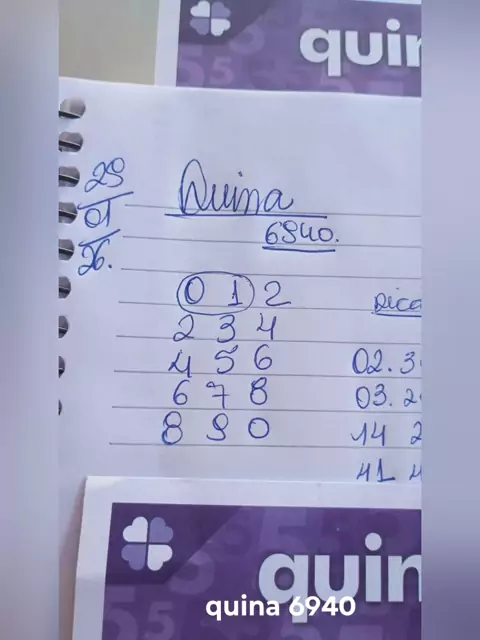 quin
29
Quina
01
6940.
26.
0 1 2
Dica
2 3 4
4 5 6
02. 3
6 7 8
03. 2
8 9 0
14 2
41 4
quin
quina 6940